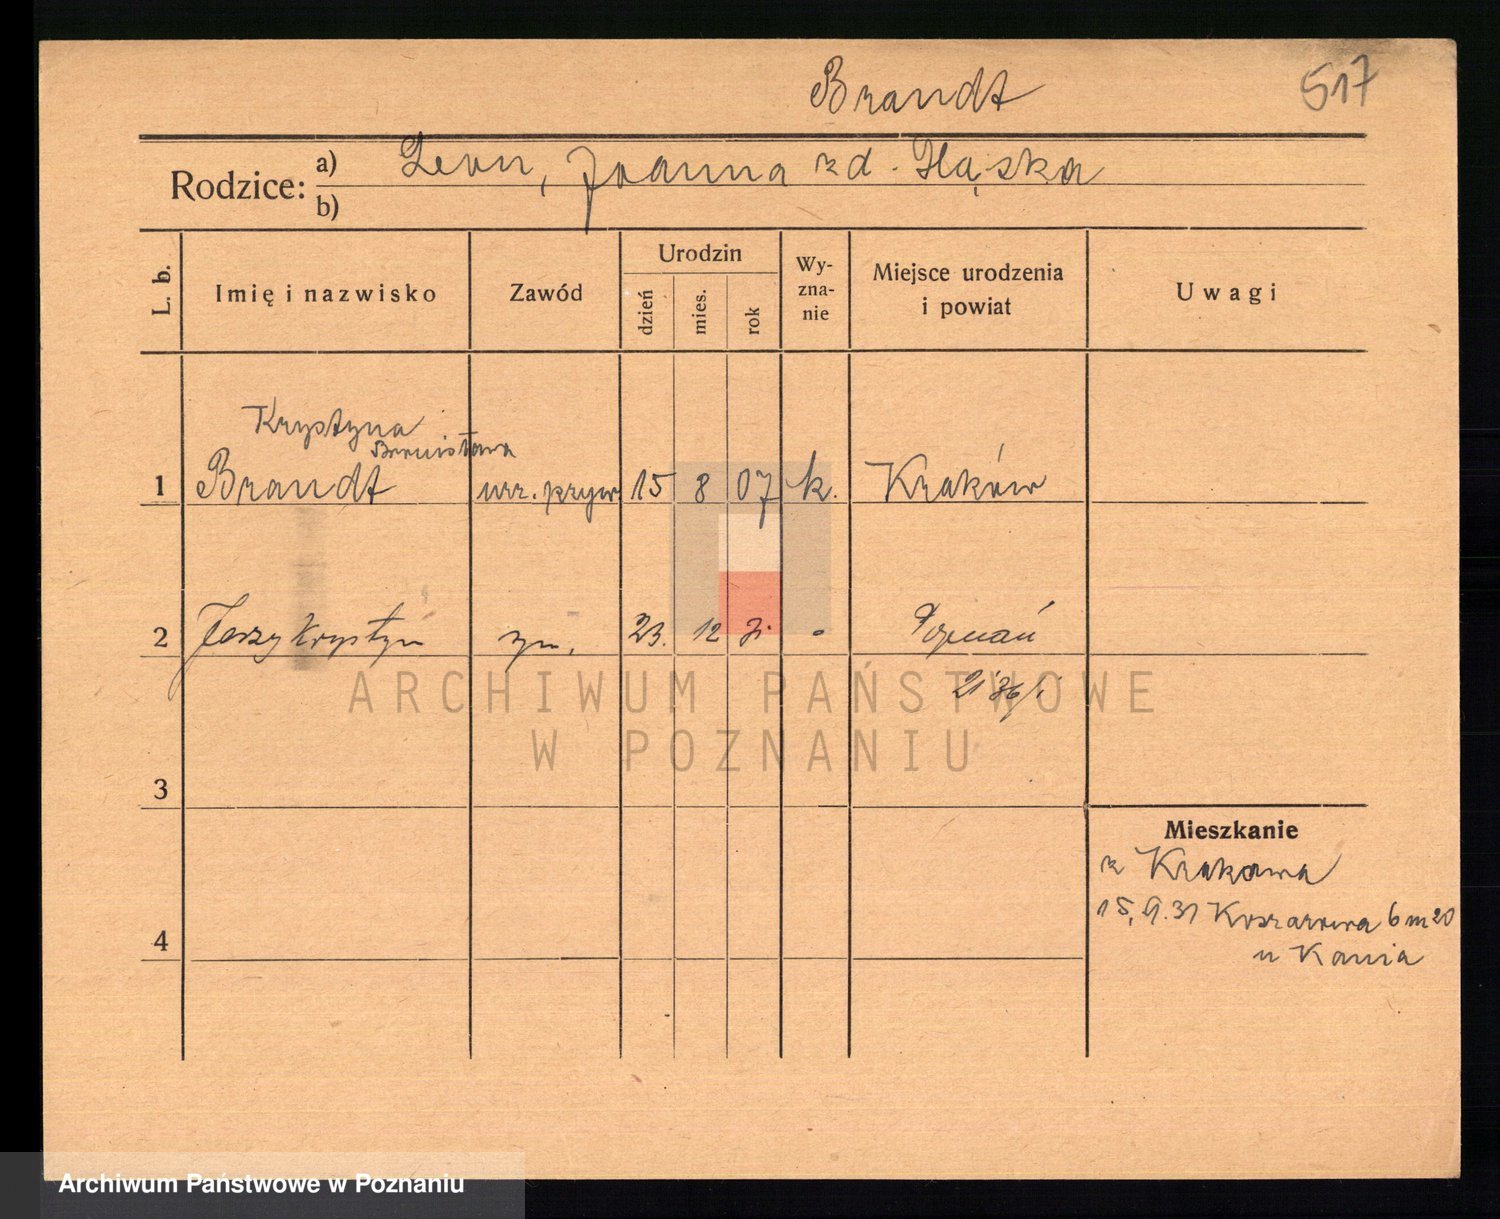 Brandt 517
Rodzice: a) Leon, Joanna z d. Hląska
b)
L. b. Imię i nazwisko Zawód Urodzin dzień mies. rok Wy-zna-nie Miejsce urodzenia i powiat Uwagi
Krystyna
Bronisława
1 Brandt urz. pryw 15 8 07 k. Kraków
2 Jerzy Krystyn syn. 23. 12 Poznań
ARCHIWUM PAŃSTWOWE
W POZNANIU
3
Mieszkanie
z Krakowa
15. 9. 31 Koszarowa 6 m 20
4
u Kania
Archiwum Państwowe w Poznaniu